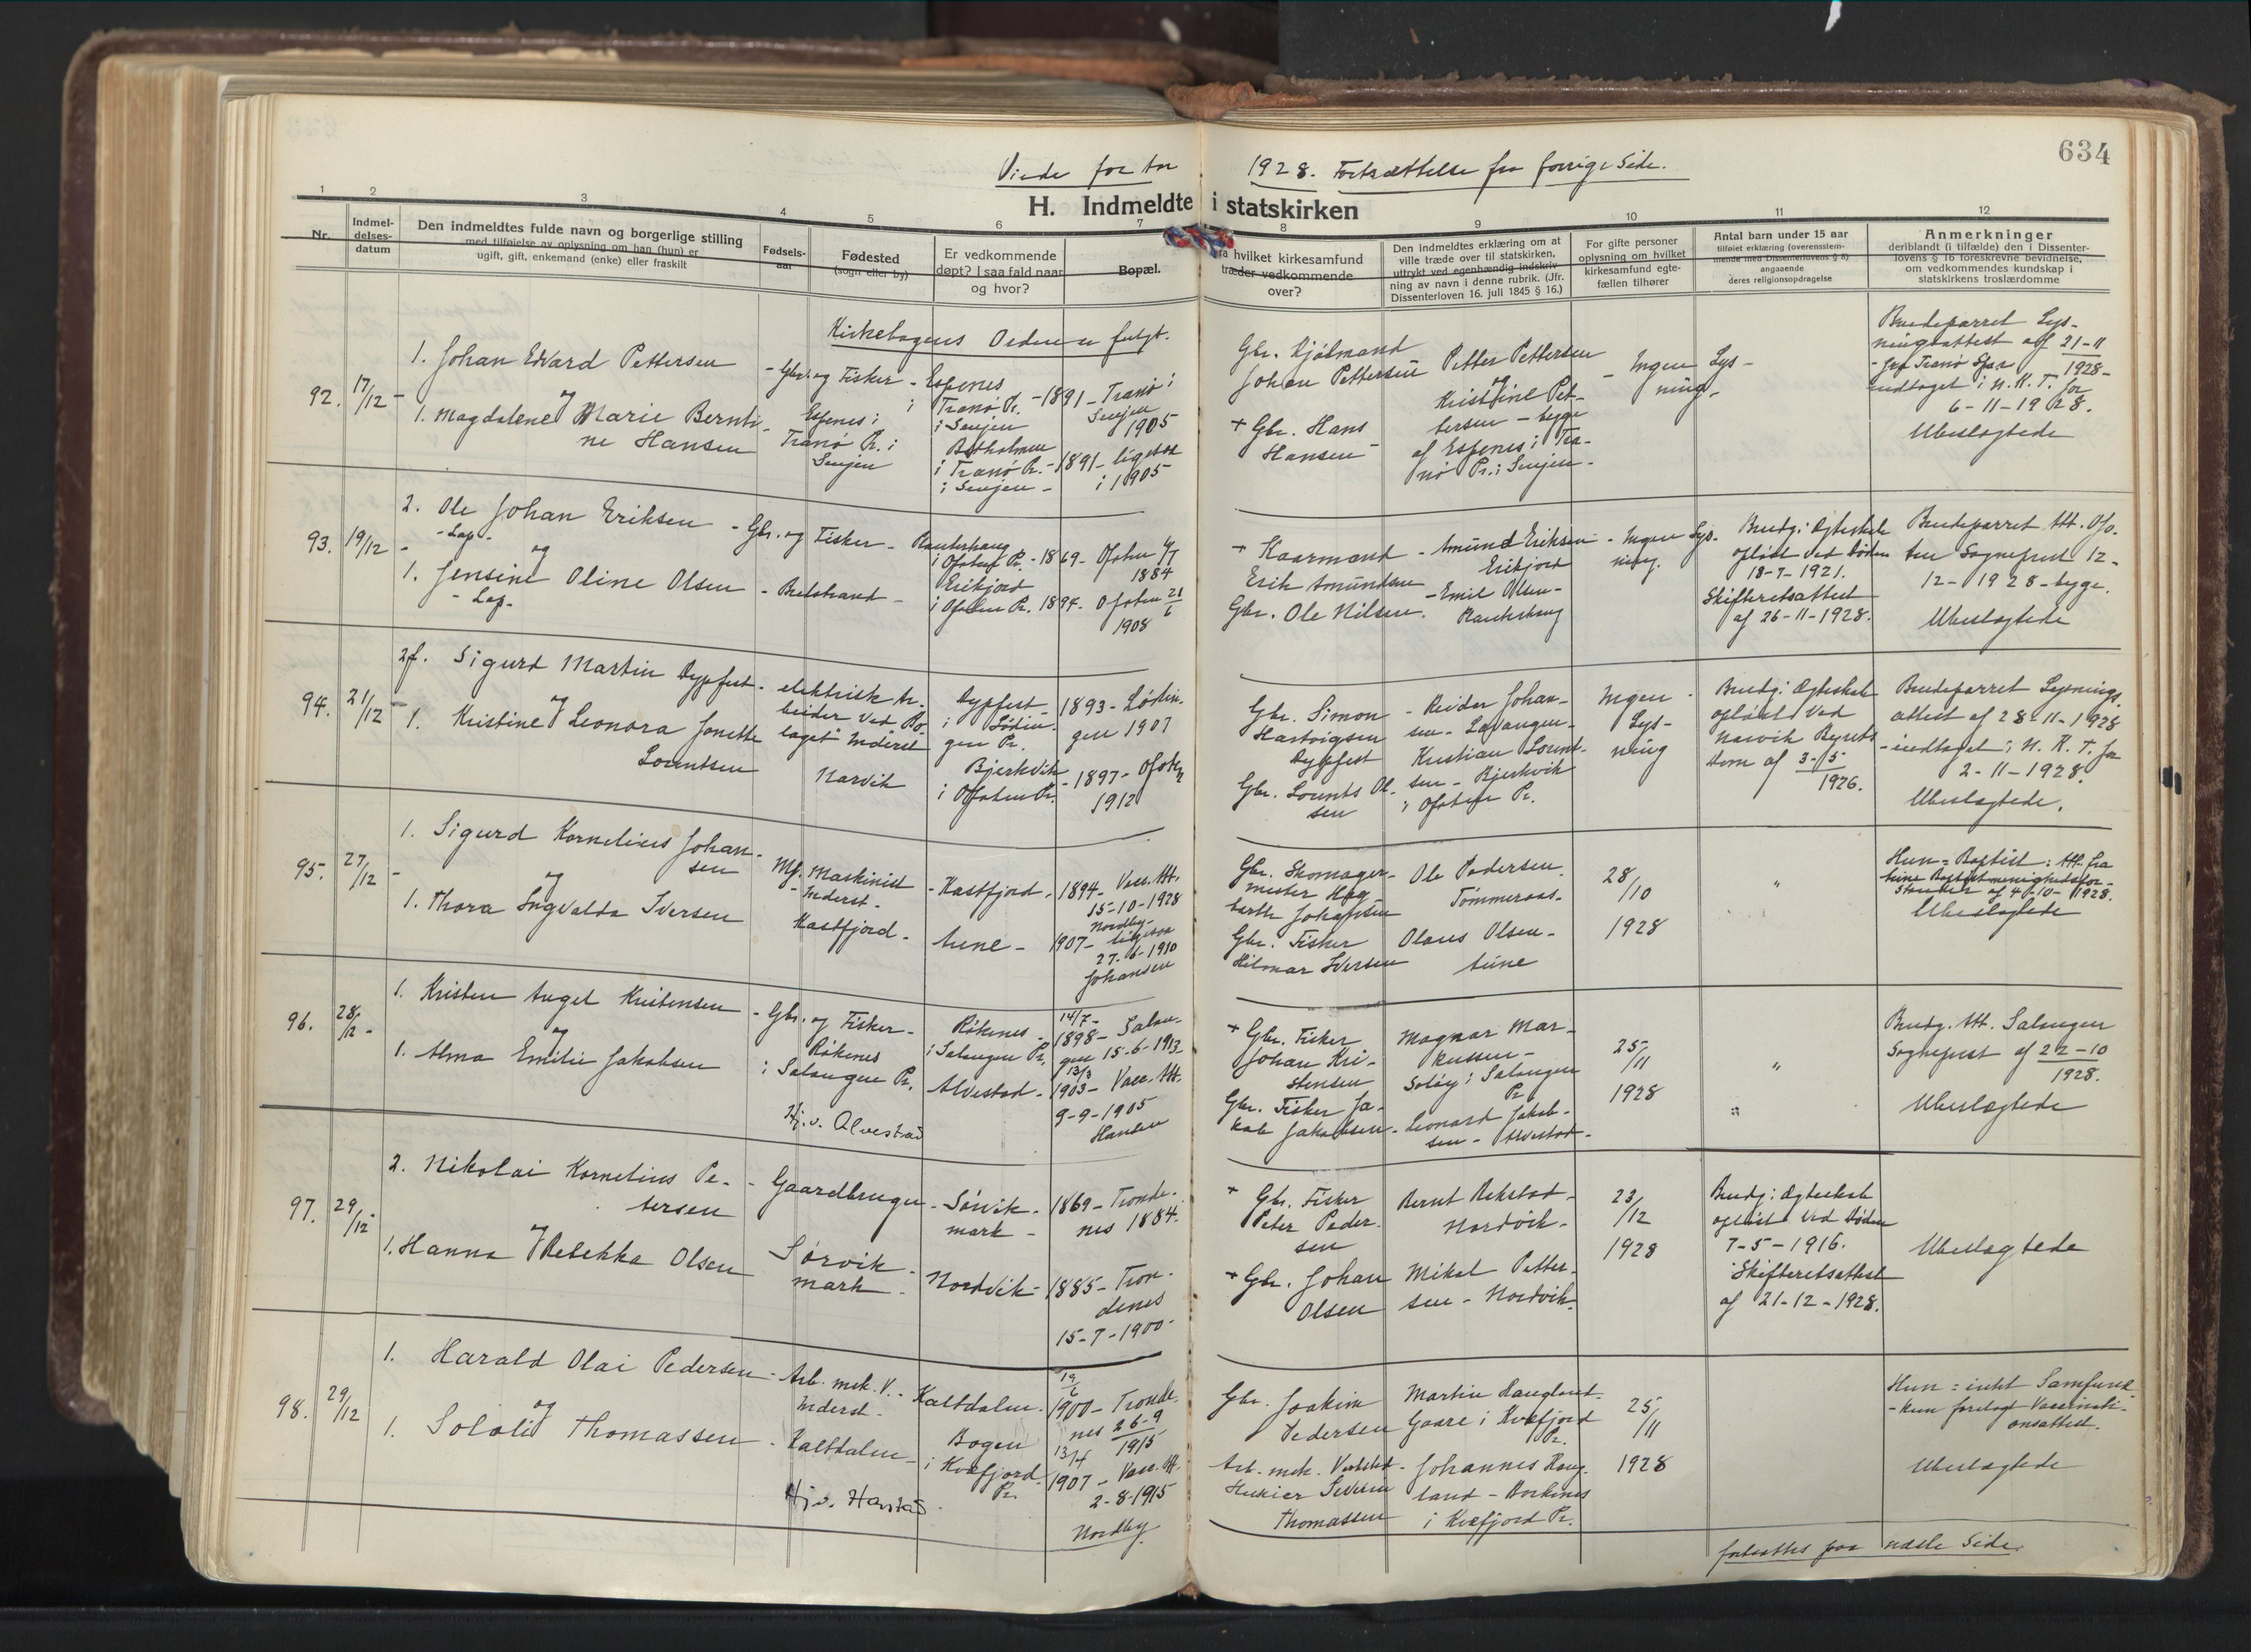 634
Viede for Aar 1928. Fortsættelse fra forrige Side.
H. Indmeldte i statskirken
1 2 3 4 5 6 7 8 9 10 11 12
Nr.
Indmel-
delses-
datum
Den indmeldtes fulde navn og borgerlige stilling
med tilføielse av oplysning om han (hun) er
ugift, gift, enkemand (enke) eller fraskilt
Fødsels-
aar
Fødested
(sogn eller by)
Er vedkommende
døpt? I saa fald naar
og hvor?
Bopæl.
Fra hvilket kirkesamfund
træder vedkommende
over?
Den indmeldtes erklæring om at
ville træde over til statskirken,
uttrykt ved egenhændig indskriv-
ning av navn i denne rubrik. (Jfr.
Dissenterloven 16. juli 1845 § 16.)
For gifte personer
oplysning om hvilket
kirkesamfund egte-
fællen tilhører
Antal barn under 15 aar
tilføiet erklæring (overensstem-
mende med Dissenterlovens § 8)
angaaende
deres religionsopdragelse
Anmerkninger
deriblandt (i tilfælde) det i Dissenter-
lovens § 16 foreskrevne bevidnelse,
om vedkommendes kundskap i
statskirkens troslærdomme
Kirkebogens Orden er fulgt.
92. 17/12 -
1. Johan Edvard Pettersen
og
1. Magdalene Marie Bernti-
ne Hansen
- Gbr. og Fisker -
Espenes i
Tranø Pr. i
Senjen
Espenes
i Tranø Pr.
i Senjen
Botholmen
i Tranø Pr.
i Senjen -
- 1891 - Tranø i
Senjen
1905
- 1891 - ligesaa
i 1905
Gbr. Hjølmand
Johan Pettersen
+ Gbr. Hans
Hansen -
Petter Pettersen
og
Kristine Pet-
tersen - begge
af Espenes i Tra-
nø Pr. i Senjen -
- Ingen Lys-
ning -
Brudeparret Lys-
ningsattest af 21-11
1928 -
indtaget i N. K. T. for
6-11-1928.
Ubeslægtede
93. 19/12 -
2. Ole Johan Eriksen
- Lap -
og
1. Jensine Oline Olsen
- Lap -
- Gbr. og Fisker -
- Bredstrand -
i Ofoten Pr. - 1869 - Ofoten
1884
i Ofoten Pr. 1894 - Ofoten 21/6
1908
+ Kaarmand
Erik Amundsen
Gbr. Ole Nilsen.
- Amund Eriksen
- Emil Olsen -
- Ingen Lys-
ning.
Brudg: Ægteskab
opløst ved Døden
18-7-1921.
Skifteretsattest
af 26-11-1928.
Brudeparret Att. Ofo-
ten Sogneprest 12-
12-1928 - begge.
Ubeslægtede
94. 21/12 -
2f. Sigurd Martin Dypfest
og
1. Kristine Leonora Jonette
Lorentsen
- elektrisk Ar-
beider ved "Bo-
laget" Inderst
Narvik
Dypfest
i Lødin-
gen Pr.
Bjerkvik
i Ofoten Pr.
- 1893 - Lødin-
gen 1907
- 1897 - Ofoten
1912
Gbr. Simon
Hartvigsen
Dypfest
Gbr. Lorents Ol-
sen
- Reidar Johan-
sen - Lavangen -
Kristian Lorent-
sen - Bjerkvik
i Ofoten Pr.
Ingen
Lys-
ning
Brudg: Ægteskab
opløst ved
Narvik Byrets
Dom af 3-5
1926.
Brudeparret Lysnings-
attest af 28-11-1928
- indtaget i N. K. T. for
2-11-1928.
Ubeslægtede.
95. 27/12 -
1. Sigurd Kornelius Johan-
sen
og
1. Thora Ingvalda Iversen
Mf. Maskinist
- Inderst -
Kastfjord -
- Kastfjord -
Aune -
1894 - Vacc. Att.
15-10-1928
Nordby -
1907 - ligesaa
27-6-1910
Johansen
Gbr. Skomager-
mester Hag-
barth Johansen
Gbr. Fisker
Hilmar Iversen
Ole Pedersen
Tømmeraas -
Olaus Olsen -
Aune
28/10
1928
"
Hun = Baptist: Att. fra
stander af 4-10-1928.
Ubeslægtede
96. 28/12 -
1. Kristen Angel Kristensen
og
1. Alma Emilie Jakobsen
- Gbr. og Fisker -
Røkenes
i Salangen Pr.
Hj. v. Alvestad
Røkenes
i Salangen Pr.
Alvestad
14/7 -
1898 - Salan-
gen 15-6-1913
13/3
- 1903 - Vacc. Att.
9-9-1905
Hansen
+ Gbr. Fisker
Johan Kri-
stensen
Gbr. Fisker Ja-
kob Jakobsen -
Magnar Mar-
kussen -
Soløy i Salangen
Pr.
Leonard Jakob-
sen - Alvestad -
25/11
1928
"
"
Brudg. Att. Salangen
Sogneprest af 22-10
1928.
Ubeslægtede
97. 29/12 -
2. Nikolai Kornelius Pe-
tersen
og
1. Hanna Rebekka Olsen
- Gaardbruger
Sørvik-
mark -
- Sørvik-
mark -
Nordvik -
1869 - Tronde-
nes 1884.
1885 - Tron-
denes
15-7-1900 -
+ Gbr. Fisker
Peter Peder-
sen
+ Gbr. Johan
Olsen
Bernt Rekstad -
Nordvik -
Mikal Petter-
sen - Nordvik.
23/12
1928
Brudg: Ægteskab
opløst ved Døden
7-5-1916.
Skifteretsattest
af 21-12-1928.
Ubeslægtede
98. 29/12
1. Harald Olai Pedersen
og
1. Sololie Thomassen
- Arb. mek. V. -
Inderst -
Kaltdalen -
Hj. v. Harstad.
Kaltdalen -
Bogen
i Kvæfjord
Pr.
19/6
1900 - Tronde-
nes 26-9
1915
13/4
1907 - Vacc. Att.
2-8-1915
Nordby
Gbr. Joakim
Pedersen
Arb. mek. Verksted -
Severin
Thomassen
Martin Haugland -
Gaare i Kvæfjord
Pr.
Johannes Haug-
land - Borkenes
i Kvæfjord Pr.
25/11
1928
Hun = intet Samfund
- kun forelagt Vaccinati-
onsattest.
Ubeslægtede
fortsættes paa næste Side.